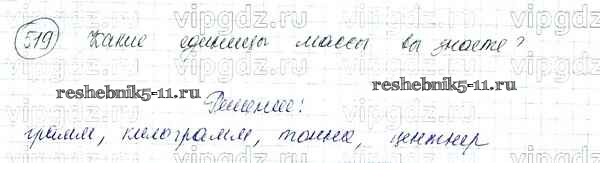 519 Какие единицы массы вы знаете?
reshebnik5-11.ru
reshebnik5-11.ru
Решение:
грамм, килограмм, тонна, центнер
vipgdz.ru vipgdz.ru vipgdz.ru